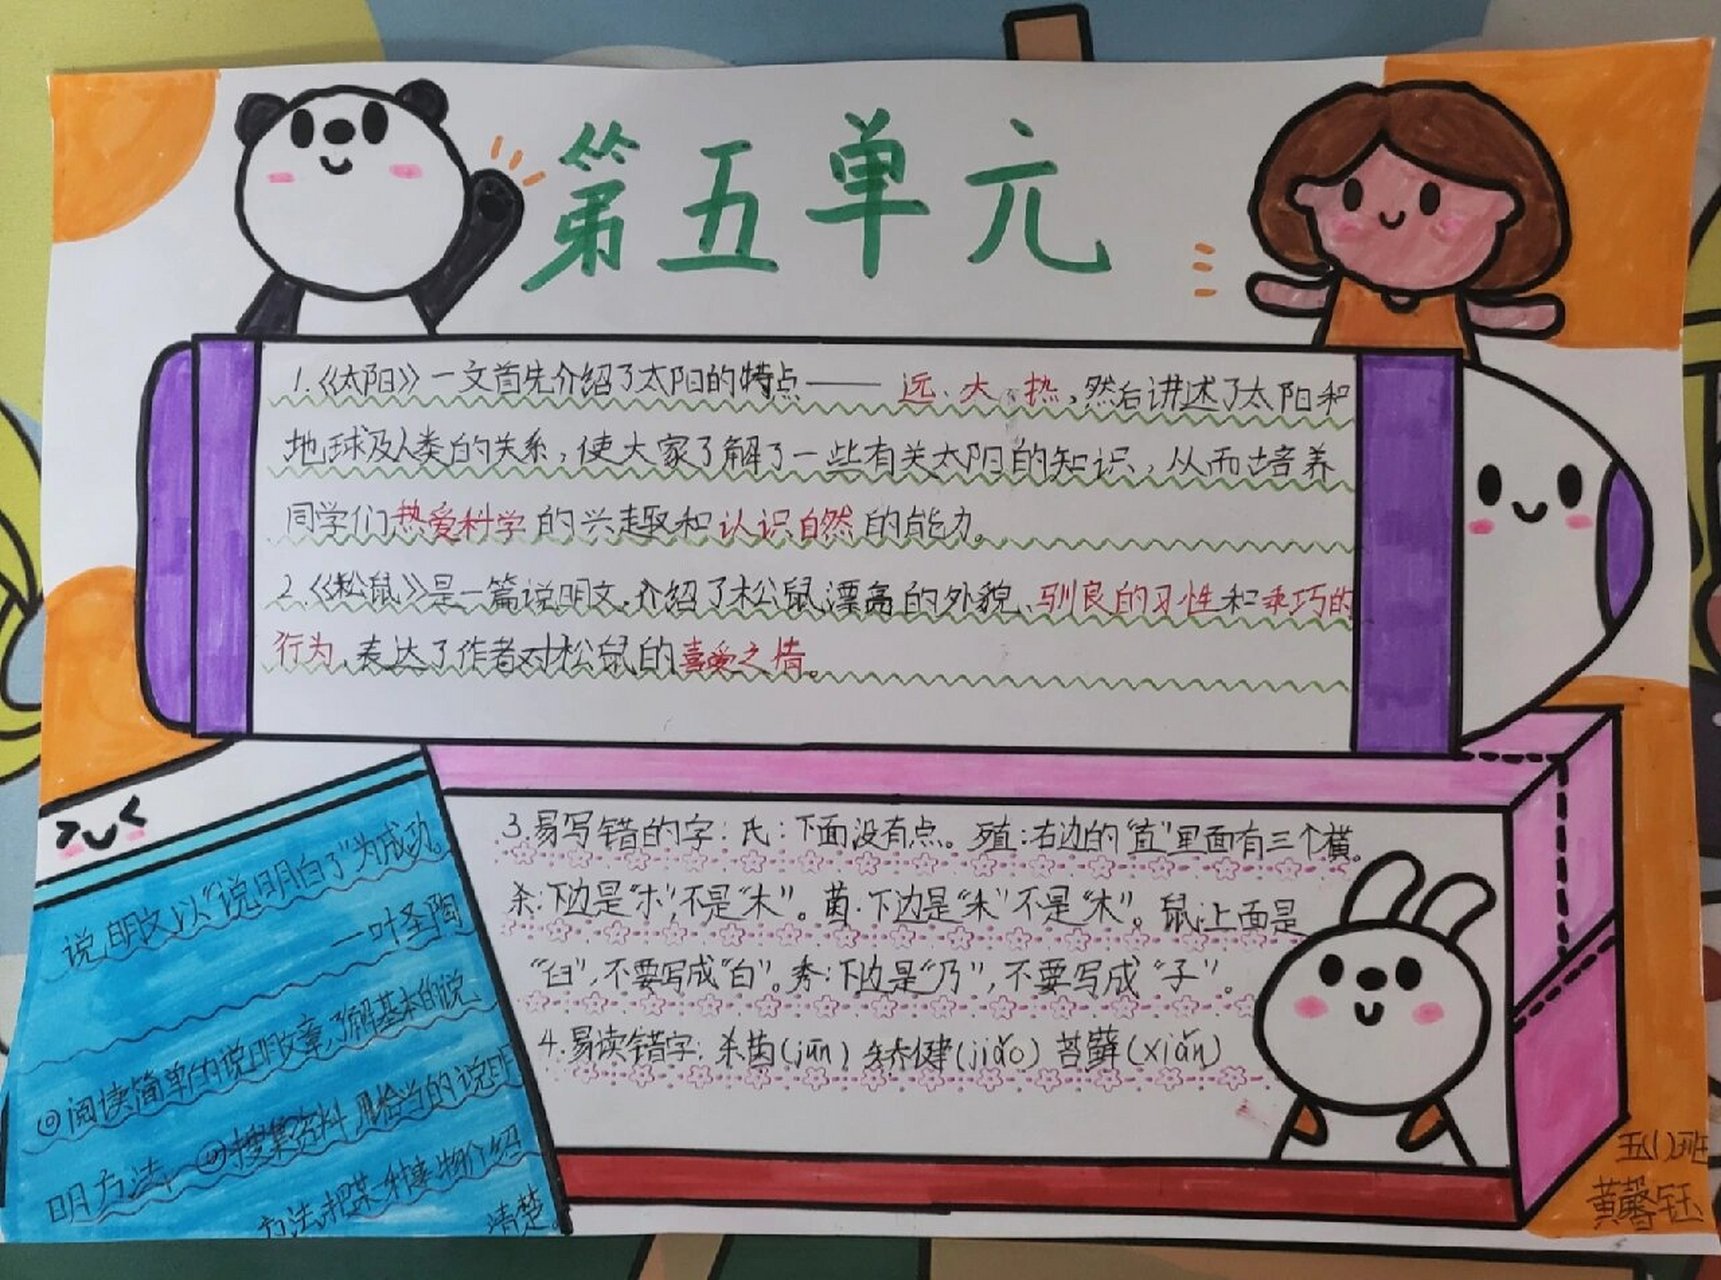 第五单元
1.《太阳》一文首先介绍了太阳的特点——远、大、热,然后讲述了太阳和
地球及人类的关系,使大家了解了一些有关太阳的知识,从而培养
同学们热爱科学的兴趣和认识自然的能力。
2.《松鼠》是一篇说明文.介绍了松鼠漂亮的外貌、驯良的习性和乖巧的
行为,表达了作者对松鼠的喜爱之情。
说明文以“说明白了”为成功。
—叶圣陶
◎阅读简单的说明文章,了解基本的说
明方法 ◎搜集资料,用恰当的说明
方法,把某一种事物介绍
清楚。
3.易写错的字:氏:下面没有点。殖:右边的“直”里面有三个横。
杀:下边是“朩”,不是“木”。茵:下边是“朱”不是“木”。鼠:上面是
“臼”,不要写成“白”。秀:下边是“乃”,不要写成“子”。
4.易读错字:杀菌(jūn) 矫健(jiǎo) 苔藓(xiǎn)
五(1)班
黄馨钰